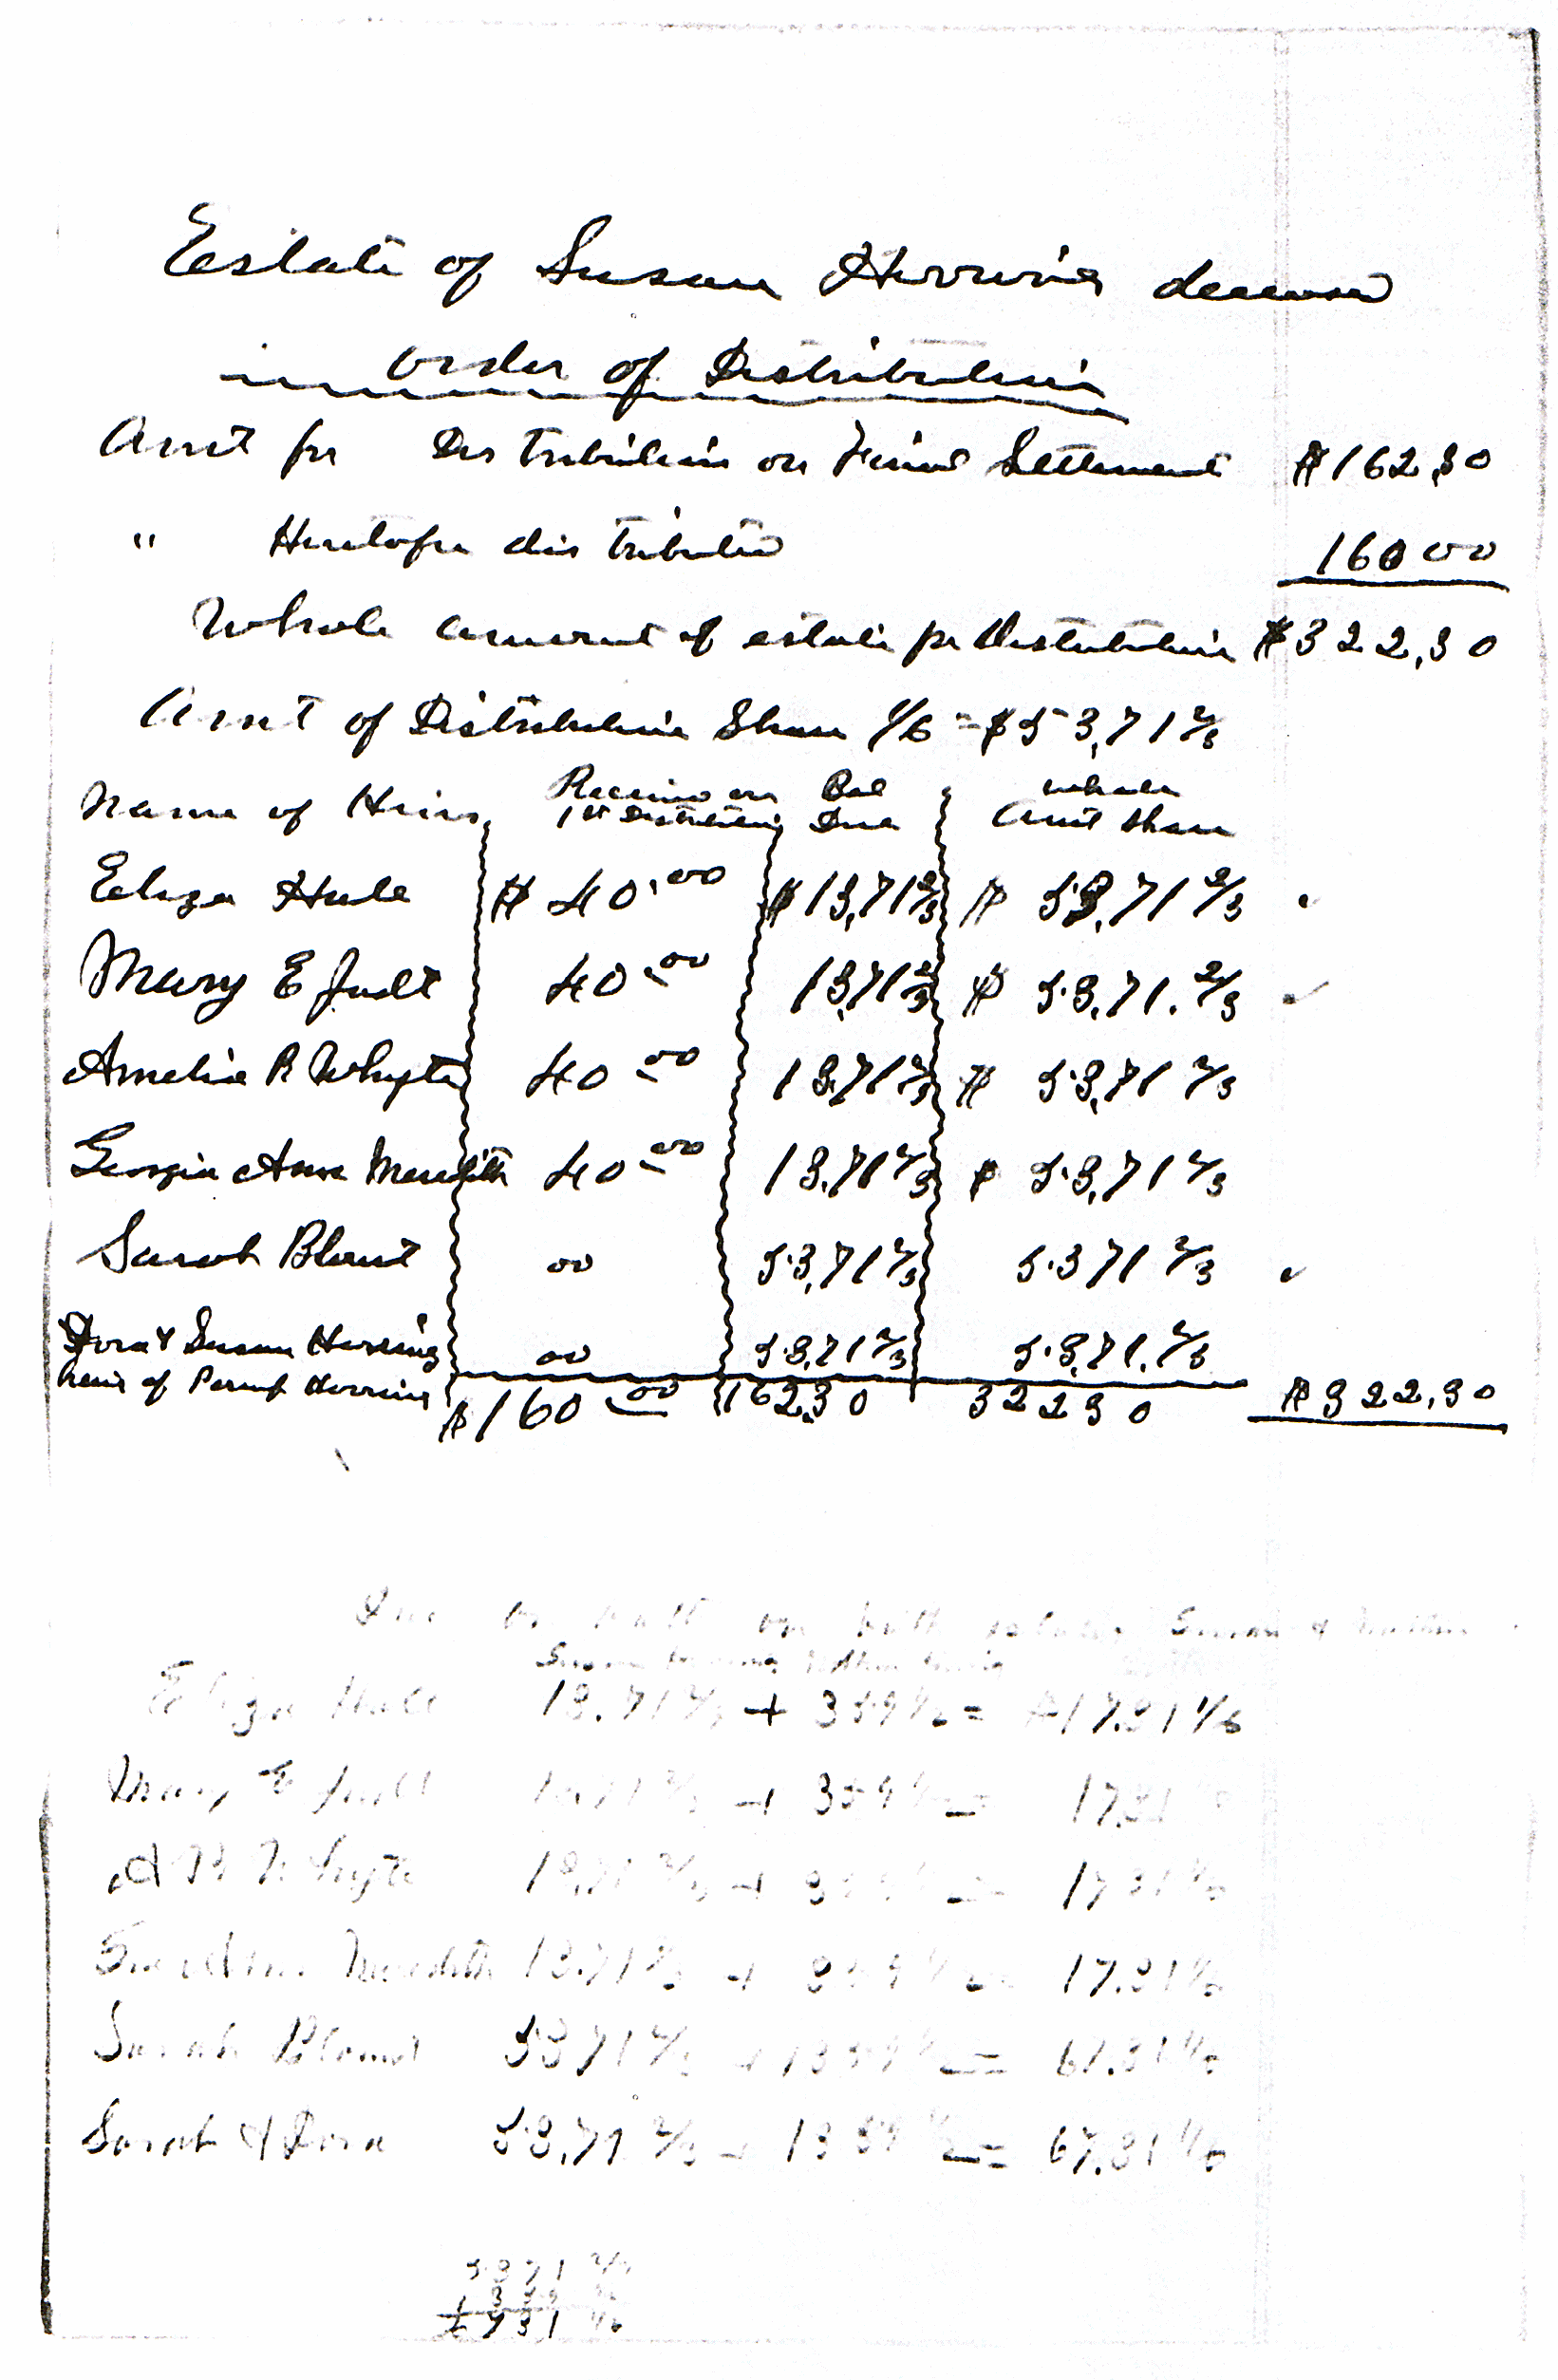 Estate of Susan Herring deceased
Order of Distribution
Amt for Distribution on Final Settlement $162,30
" Heretofore distributed 160 00
Whole amount of estate for Distribution $322,30
Amt of Distribution Share 1/6 = $53,71 2/3
Name of Heirs Received on 1st Distribution Bal Due whole Amt Share
Eliza Hule $40.00 $13,71 2/3 $53,71 2/3
Mary E Judt 40 00 13,71 2/3 $53,71. 2/3
Amelia R Whyte 40 00 13,71 2/3 $53,71 2/3
Georgia Ann Meredith 40 00 13,71 2/3 $53,71 2/3
Sarah Blount 00 53,71 2/3 5371 2/3
Dora & Susan Herring 00 53,71 2/3 53,71. 2/3
heirs of Herring $160 00 162,30 322 30 $322,30
Due on both estates Susan &
Susan Herring
Eliza Hule 13.71 2/3 + 359 1/2 = $17.31 1/6
Mary E Judt + 359 = 17.31
A R Whyte 13.71 2/3 + = 17 31 1/6
Ann Meredith 13.71 2/3 + 359 1/2 = 17.31 1/6
Sarah Blount 5371 2/3 + 1359 1/2 = 67.31 1/6
Sarah & Dora 53.71 2/3 + 1359 1/2 = 67.31 1/6
5371 2/3
6731 1/6